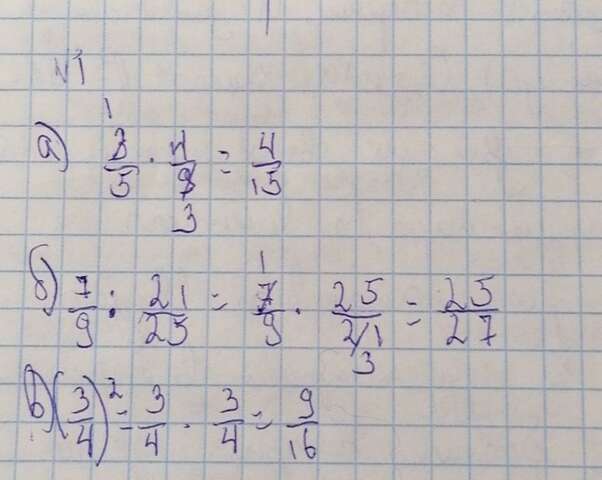 №1
а) 3/5 · 4/9 = 4/15
1
3
б) 7/9 : 21/25 = 7/9 · 25/21 = 25/27
1
3
в) (3/4)² = 3/4 · 3/4 = 9/16